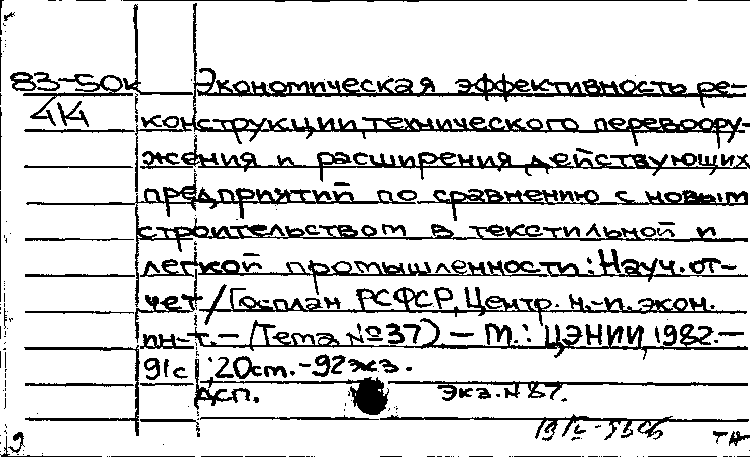 83-50к Экономическая эффективность ре-
414 конструкции, технического перевоору-
жения и расширения действующих
предприятий по сравнению с новым
строительством в текстильной и
легкой промышленности: Науч. от-
чет / Госплан РСФСР, Центр. н.-и. экон.
ин-т. - (Тема №37) - М.: ЦЭНИИ, 1982.-
91с ; 20ст. - 92экз.
ДСП. Экз. N 87.